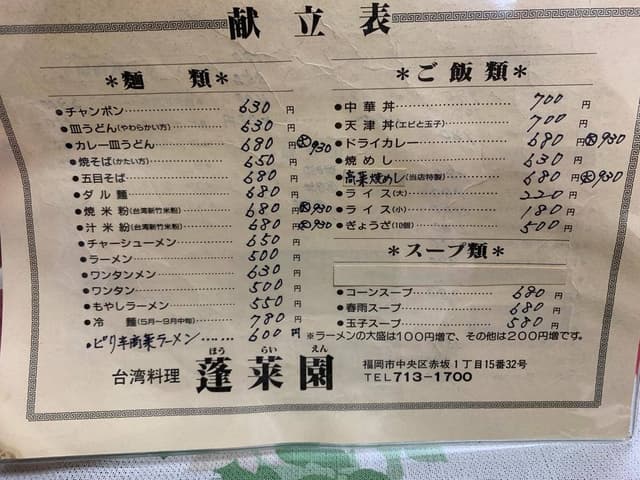 献立表
＊麺類＊
●チャンポン……630円
●皿うどん(やわらかい方)……630円
●カレー皿うどん……680円 大930
●焼そば(かたい方)……650円
●五目そば……680円
●ダル麺……680円
●焼米粉(台湾新竹米粉)……680円 大930
●汁米粉(台湾新竹米粉)……680円 大930
●チャーシューメン……650円
●ラーメン……500円
●ワンタンメン……630円
●ワンタン……500円
●もやしラーメン……550円
●冷麺(5月〜9月中旬)……780円
●ピリ辛高菜ラーメン……600円
＊ご飯類＊
●中華丼……700円
●天津丼(エビと玉子)……700円
●ドライカレー……680円 大930
●焼めし……630円
●高菜焼めし(当店特製)……680円 大930
●ライス(大)……220円
●ライス(小)……180円
●ぎょうざ(10個)……500円
＊スープ類＊
●コーンスープ……680円
●春雨スープ……680円
●玉子スープ……580円
※ラーメンの大盛は100円増で、その他は200円増です。
台湾料理 蓬莱園
ほうらいえん
福岡市中央区赤坂1丁目15番32号
TEL713-1700